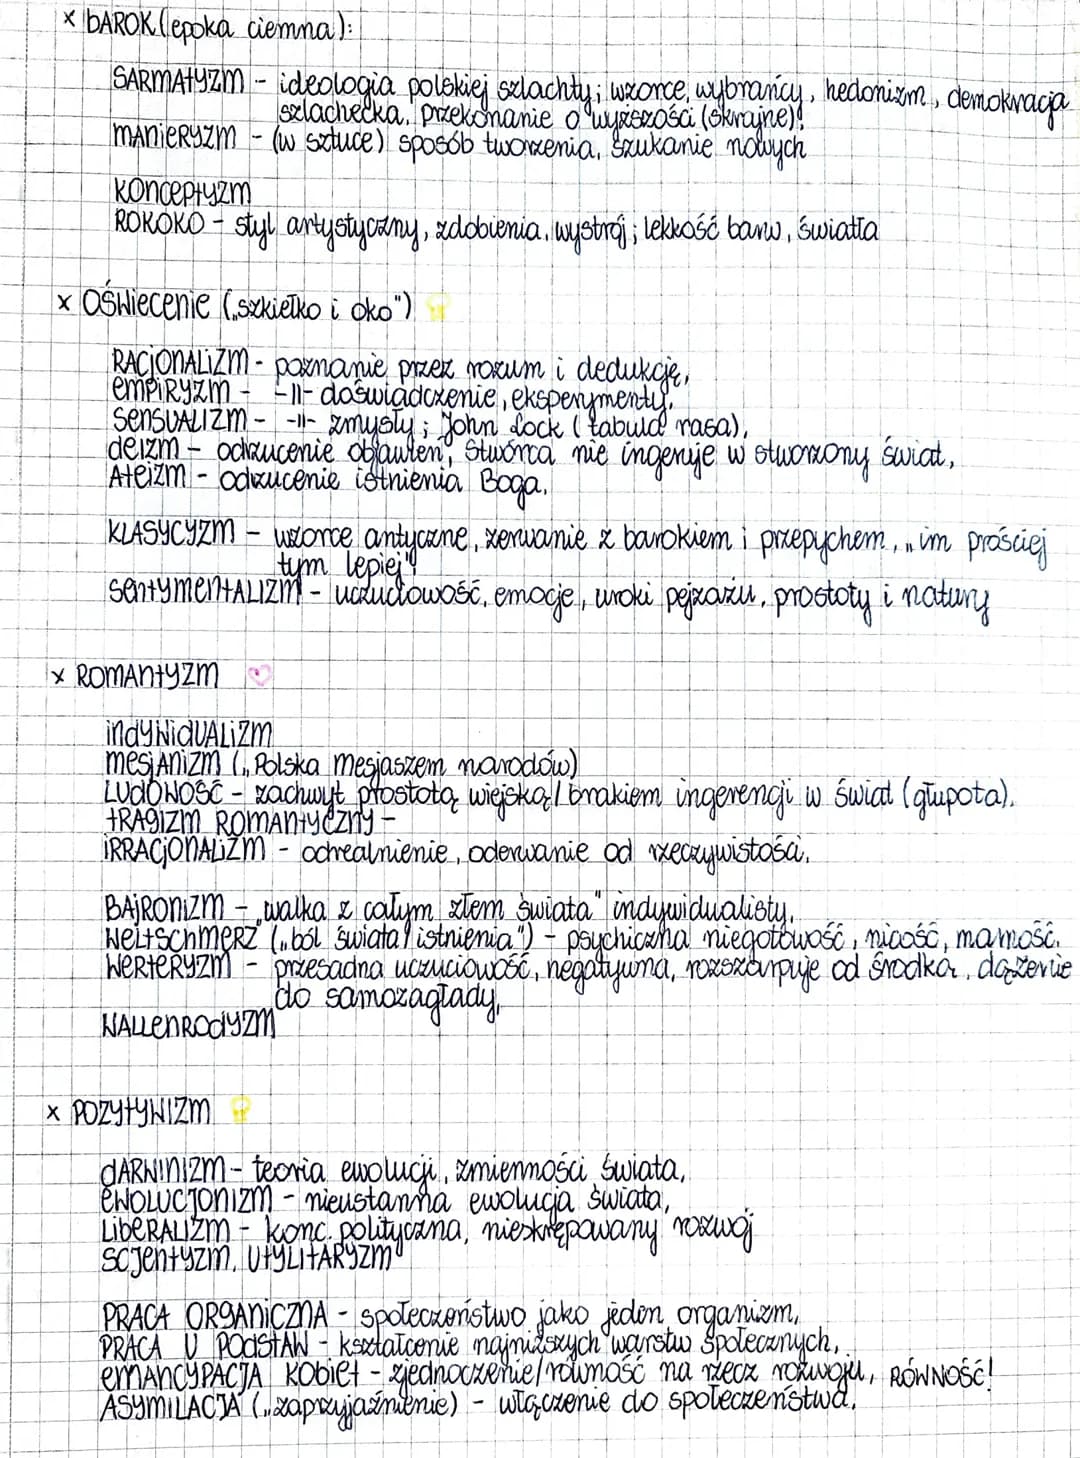 x BAROK (epoka ciemna):
SARMATYZM - ideologia polskiej szlachty; wzorce, wybrańcy, hedonizm, demokracja
szlachecka, przekonanie o wyższości (skrajne)!
MANIERYZM - (w sztuce) sposób tworzenia, szukanie nowych
KONCEPTYZM
ROKOKO - styl artystyczny, zdobienia, wystrój; lekkość barw, światła
x OŚWIECENIE („szkiełko i oko")
RACJONALIZM - poznanie przez rozum i dedukcję,
EMPIRYZM - -||- doświadczenie, eksperymenty,
SENSUALIZM - -||- zmysły; John Lock (tabula rasa),
DEIZM - odrzucenie objawień, Stwórca nie ingeruje w stworzony świat,
ATEIZM - odrzucenie istnienia Boga.
KLASYCYZM - wzorce antyczne, zerwanie z barokiem i przepychem, „im prościej
tym lepiej"!
SENTYMENTALIZM - uczuciowość, emocje, uroki pejzażu, prostoty i natury
x ROMANTYZM
INDYWIDUALIZM
MESJANIZM („Polska Mesjaszem narodów)
LUDOWOŚĆ - zachwyt prostotą wiejską/brakiem ingerencji w świat (głupota).
TRAGIZM ROMANTYCZNY -
IRRACJONALIZM - odrealnienie, oderwanie od rzeczywistości.
BAJRONIZM - „walka z całym złem świata" indywidualisty,
WELTSCHMERZ („ból świata/istnienia") - psychiczna niegotowość, nicość, marność.
WERTERYZM - przesadna uczuciowość, negatywna, rozszarpuje od środka, dążenie
do samozagłady,
WALLENRODYZM
x POZYTYWIZM
DARWINIZM - teoria ewolucji, zmienności świata,
EWOLUCJONIZM - nieustanna ewolucja świata,
LIBERALIZM - konc. polityczna, nieskrępowany rozwój
SCJENTYZM, UTYLITARYZM
PRACA ORGANICZNA - społeczeństwo jako jeden organizm,
PRACA U PODSTAW - kształcenie najniższych warstw społecznych,
EMANCYPACJA KOBIET - zjednoczenie/równość na rzecz rozwoju, RÓWNOŚĆ!
ASYMILACJA („zaprzyjaźnienie) - włączenie do społeczeństwa.